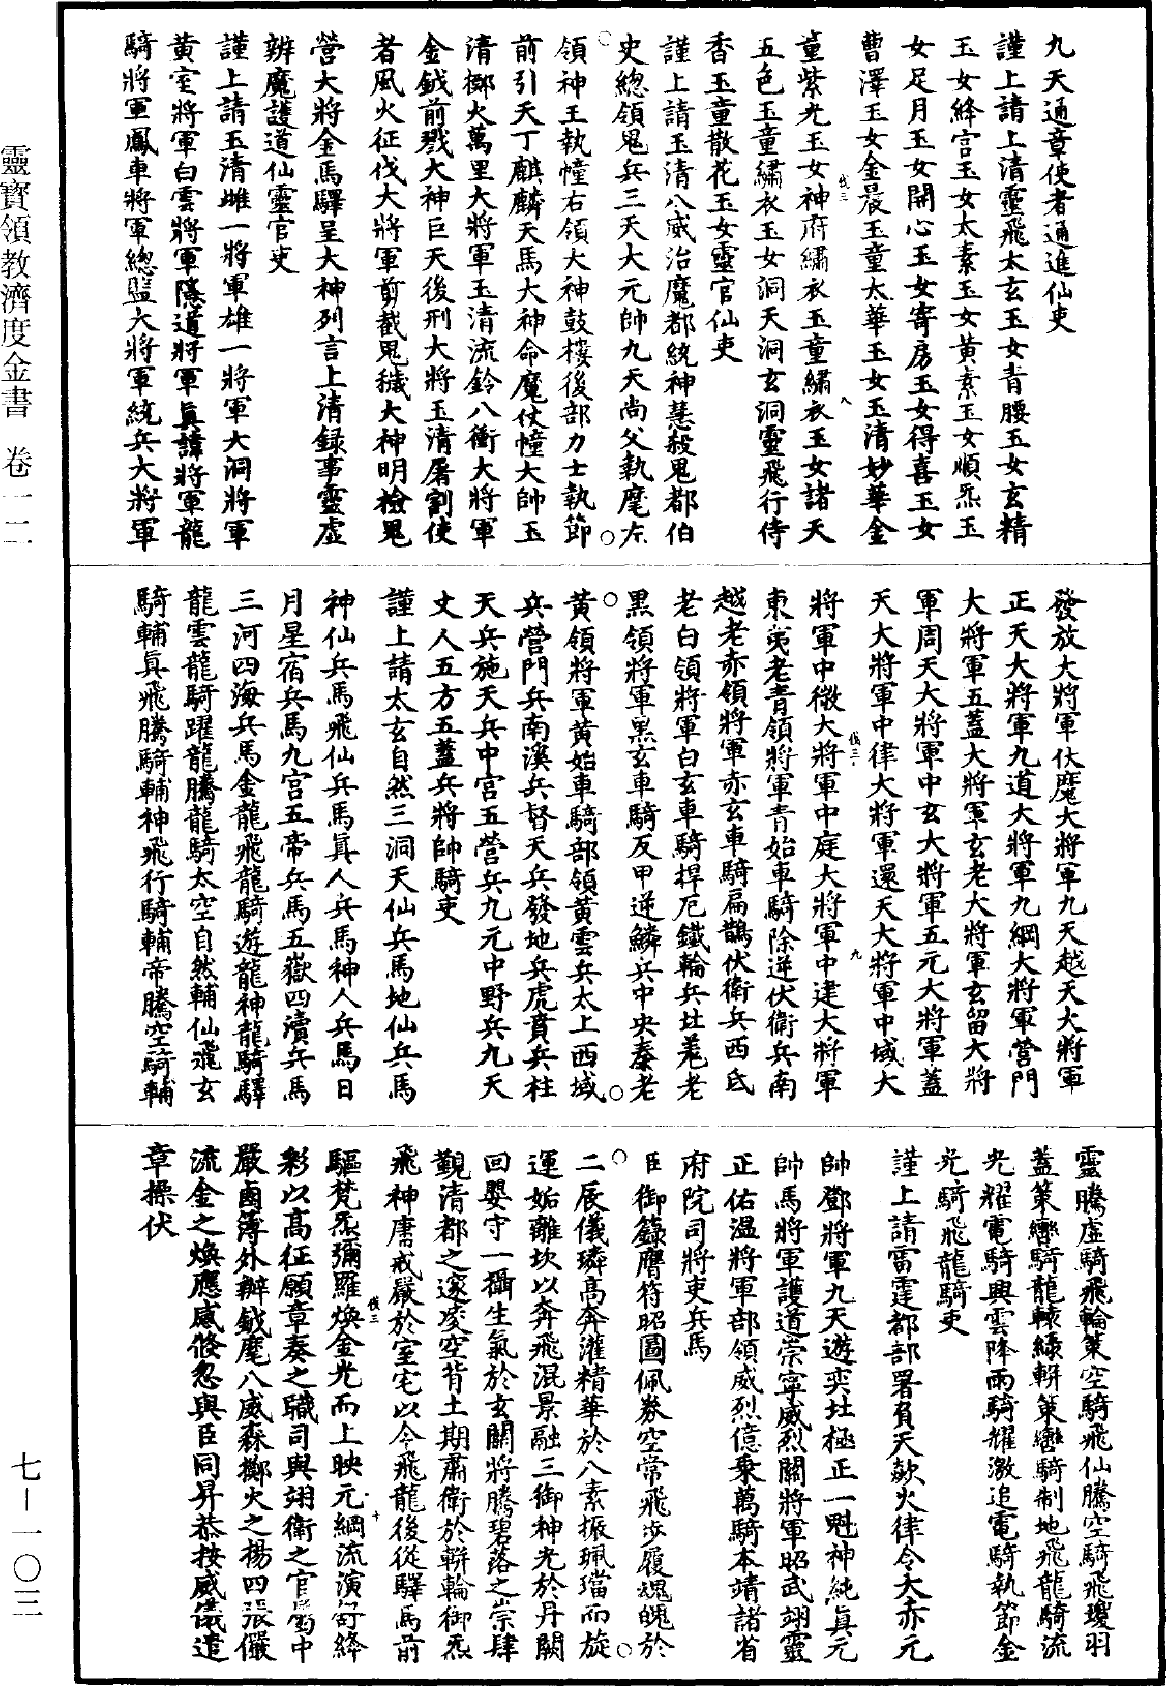 九天通章使者通進仙吏
謹上請上清靈飛太玄玉女青腰玉女玄精
玉女絳宮玉女太素玉女黃素玉女順炁玉
女足月玉女開心玉女寄房玉女得喜玉女
曹澤玉女金晨玉童太華玉女玉清妙華金
童紫光玉女神府繡衣玉童繡衣玉女諸天
五色玉童繡衣玉女洞天洞玄洞靈飛行侍
香玉童散花玉女靈官仙吏
謹上請玉清八威治魔都統神慧殺鬼都伯
史總領鬼兵三天大元帥九天尚父執麾左
領神王執幢右領大神鼓樓後部力士執節
前引天丁麒麟天馬大神命魔仗幢大帥玉
清擲火萬里大將軍玉清流鈴八衝大將軍
金鉞前戮大神巨天後刑大將玉清屠割使
者風火征伐大將軍剪截鬼穢大神明檢鬼
營大將金馬驛呈大神列言上清錄事靈虛
辨魔護道仙靈官吏
謹上請玉清雌一將軍雄一將軍大洞將軍
黃室將軍白雲將軍隱道將軍真諱將軍龍
騎將軍鳳車將軍總監大將軍統兵大將軍
發放大將軍伏魔大將軍九天越天大將軍
正天大將軍九道大將軍九綱大將軍營門
大將軍五蓋大將軍玄老大將軍玄留大將
軍周天大將軍中玄大將軍五元大將軍蓋
天大將軍中律大將軍還天大將軍中域大
將軍中微大將軍中庭大將軍中建大將軍
東夷老青領將軍青始車騎除逆伏衛兵南
越老赤領將軍赤玄車騎扁鵲伏衛兵西氐
老白領將軍白玄車騎捍厄鐵輪兵北羌老
黑領將軍黑玄車騎反甲逆鱗兵中央秦老
黃領將軍黃始車騎部領黃雲兵太上西域
兵營門兵南溪兵督天兵發地兵虎賁兵柱
天兵施天兵中宮五營兵九元中野兵九天
丈人五方五蓋兵將帥騎吏
謹上請太玄自然三洞天仙兵馬地仙兵馬
神仙兵馬飛仙兵馬真人兵馬神人兵馬日
月星宿兵馬九宮五帝兵馬五嶽四瀆兵馬
三河四海兵馬金龍飛龍騎遊龍神龍騎驛
龍雲龍騎躍龍騰龍騎太空自然輔仙飛玄
騎輔真飛騰騎輔神飛行騎輔帝騰空騎輔
靈騰虛騎飛輪策空騎飛仙騰空騎飛瓊羽
蓋策轡騎龍轅綠輧策轡騎制地飛龍騎流
光耀電騎興雲降雨騎耀激追電騎執節金
光騎飛龍騎吏
謹上請雷霆都部署負天歘火律令大赤元
帥鄧將軍九天遊奕北極正一魁神純真元
帥馬將軍護道崇寧威烈關將軍昭武翊靈
正佑溫將軍部領威烈億乘萬騎本靖諸省
府院司將吏兵馬
臣御籙膺符昭圖佩券空常飛步履魂魄於
二辰儀璘高奔灌精華於八素振珮璫而旋
運姤離坎以奔飛混景融三御神光於丹闕
回嬰守一攝生氣於玄關將騰碧落之崇肆
覲清都之邃凌空背土期肅衛於輧輪御炁
飛神庸戒嚴於室宅以今飛龍後從驛馬前
驅梵炁彌羅煥金光而上映元綱流演舒絳
彩以高征願章奏之職司與翊衛之官屬中
嚴鹵簿外辦鉞麾八威森擲火之揚四張儼
流金之煥應感倏忽與臣同昇恭按威儀遣
章操伏
伐三
八
伐三
九
伐三
十
靈寶領教濟度金書 卷一二
七—一〇三